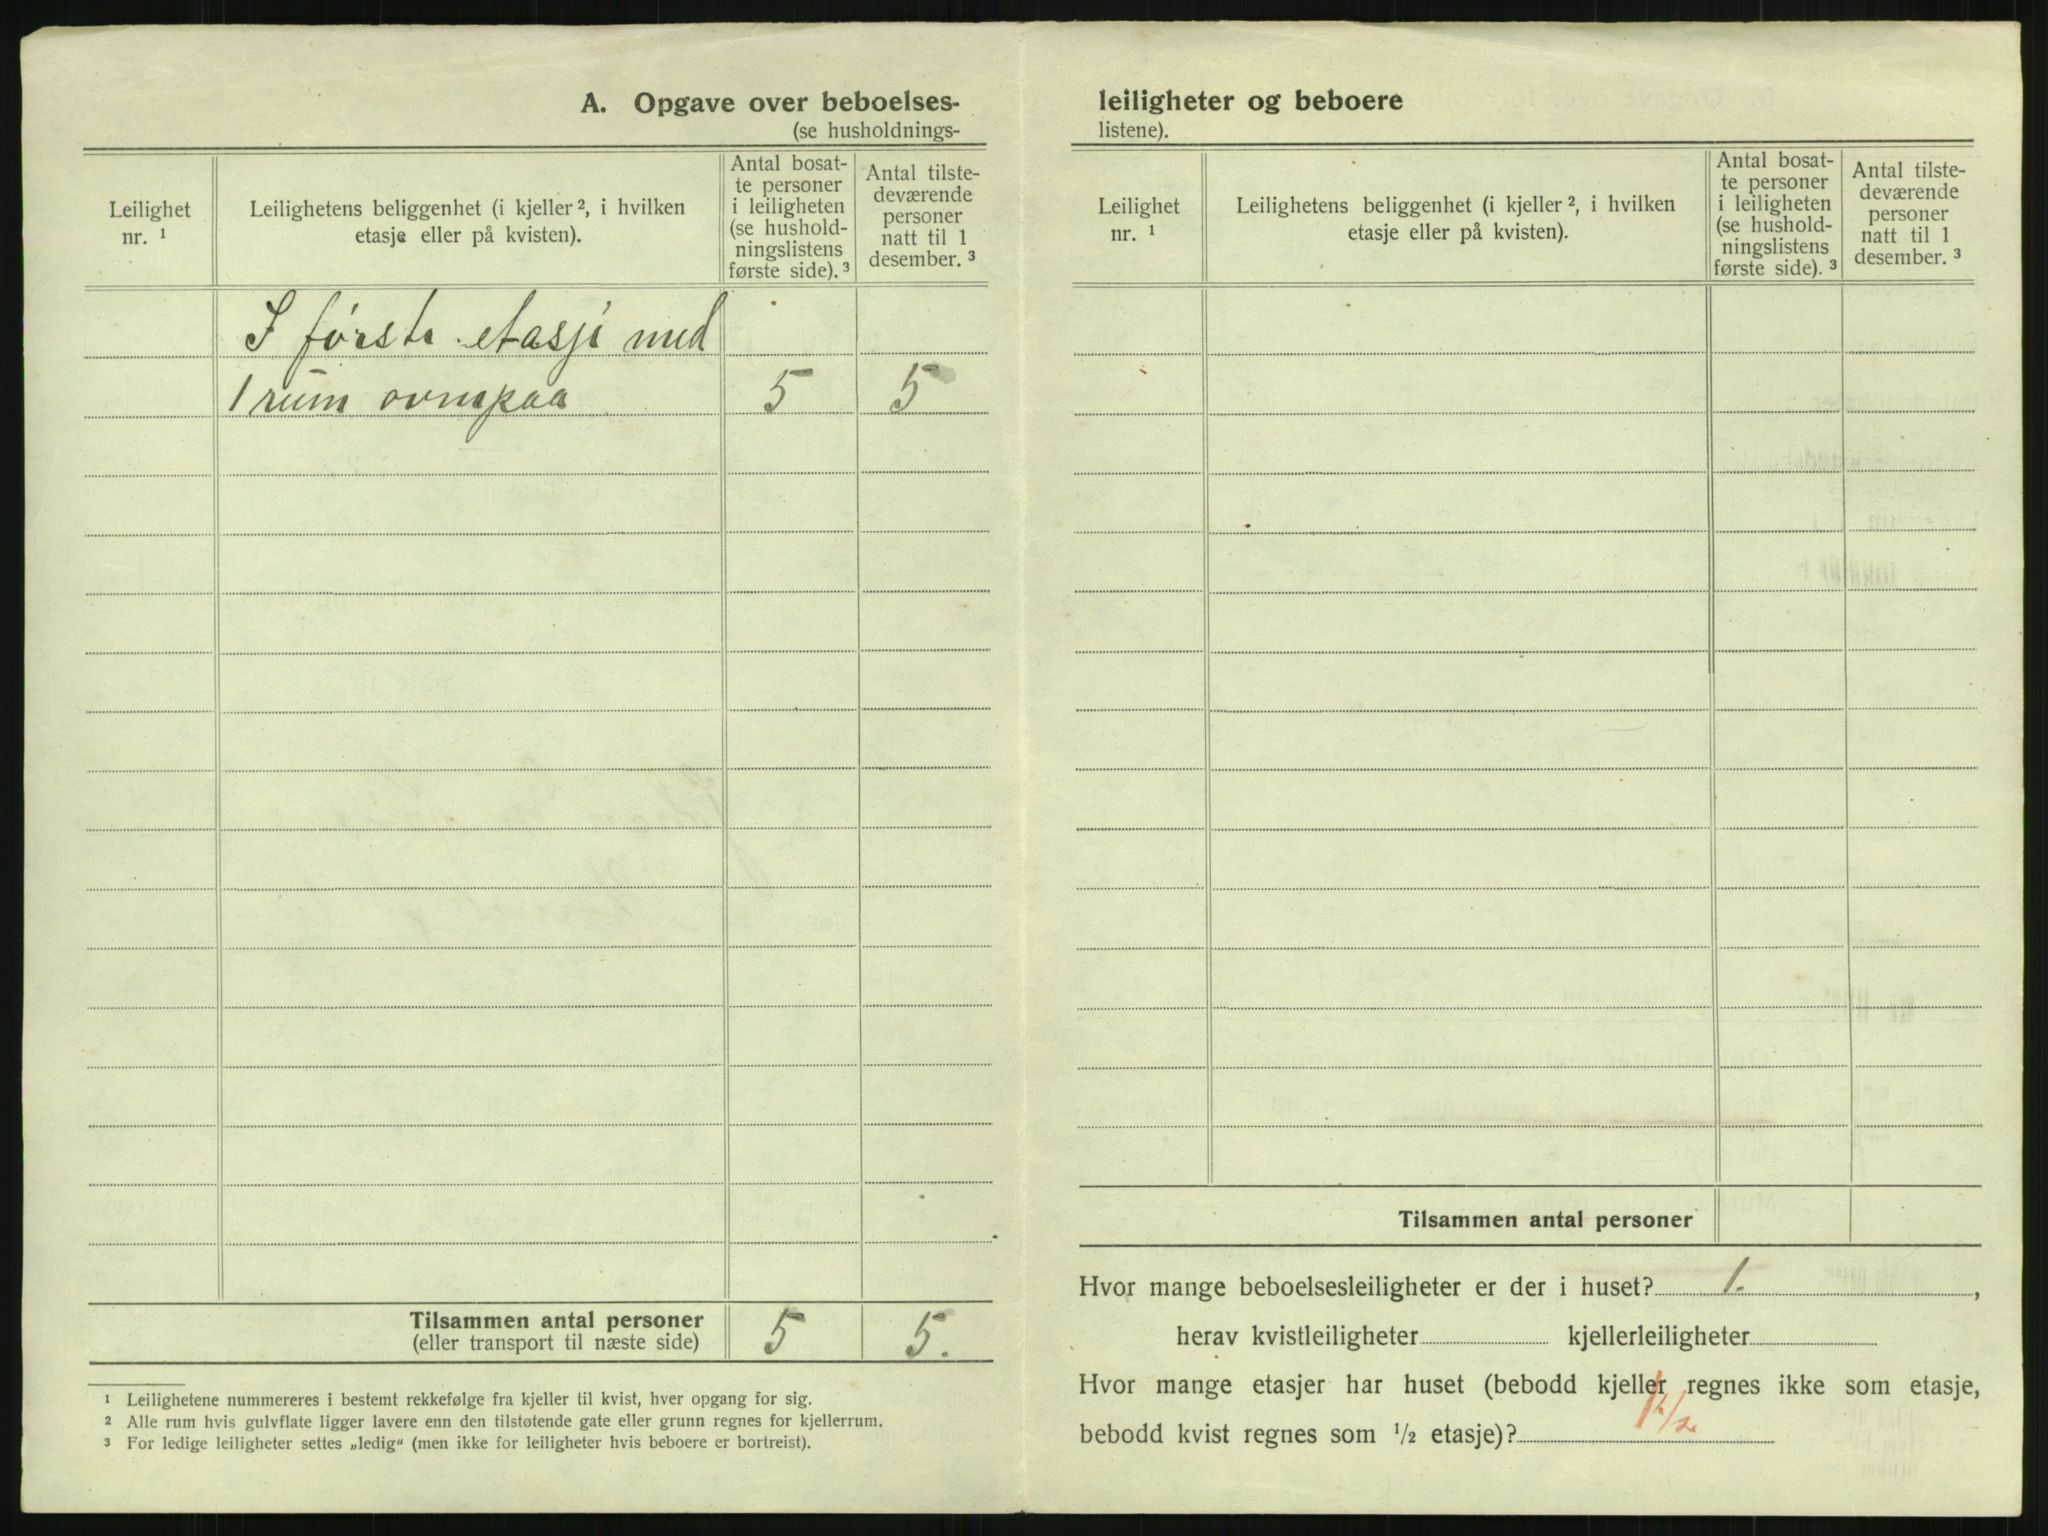 A. Opgave over beboelses-
(se husholdnings-
Leilighet
nr. ¹
Leilighetens beliggenhet (i kjeller ², i hvilken
etasje eller på kvisten).
Antal bosat-
te personer
i leiligheten
(se hushold-
ningslistens
første side). ³
Antal tilste-
deværende
personer
natt til 1
desember. ³
I første etasje med
1 rum ovenpaa 5 5
Tilsammen antal personer 5 5.
(eller transport til næste side)
¹ Leilighetene nummereres i bestemt rekkefølge fra kjeller til kvist, hver opgang for sig.
² Alle rum hvis gulvflate ligger lavere enn den tilstøtende gate eller grunn regnes for kjellerrum.
³ For ledige leiligheter settes „ledig“ (men ikke for leiligheter hvis beboere er bortreist).
leiligheter og beboere
listene).
Leilighet
nr. ¹
Leilighetens beliggenhet (i kjeller ², i hvilken
etasje eller på kvisten).
Antal bosat-
te personer
i leiligheten
(se hushold-
ningslistens
første side). ³
Antal tilste-
deværende
personer
natt til 1
desember. ³
Tilsammen antal personer
Hvor mange beboelsesleiligheter er der i huset? 1. ,
herav kvistleiligheter kjellerleiligheter
Hvor mange etasjer har huset (bebodd kjeller regnes ikke som etasje,
bebodd kvist regnes som ½ etasje)? 1 1/2